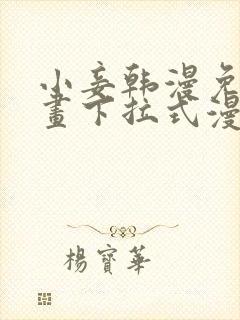 小妾韩漫免
畫下拉式漫
楊寶華